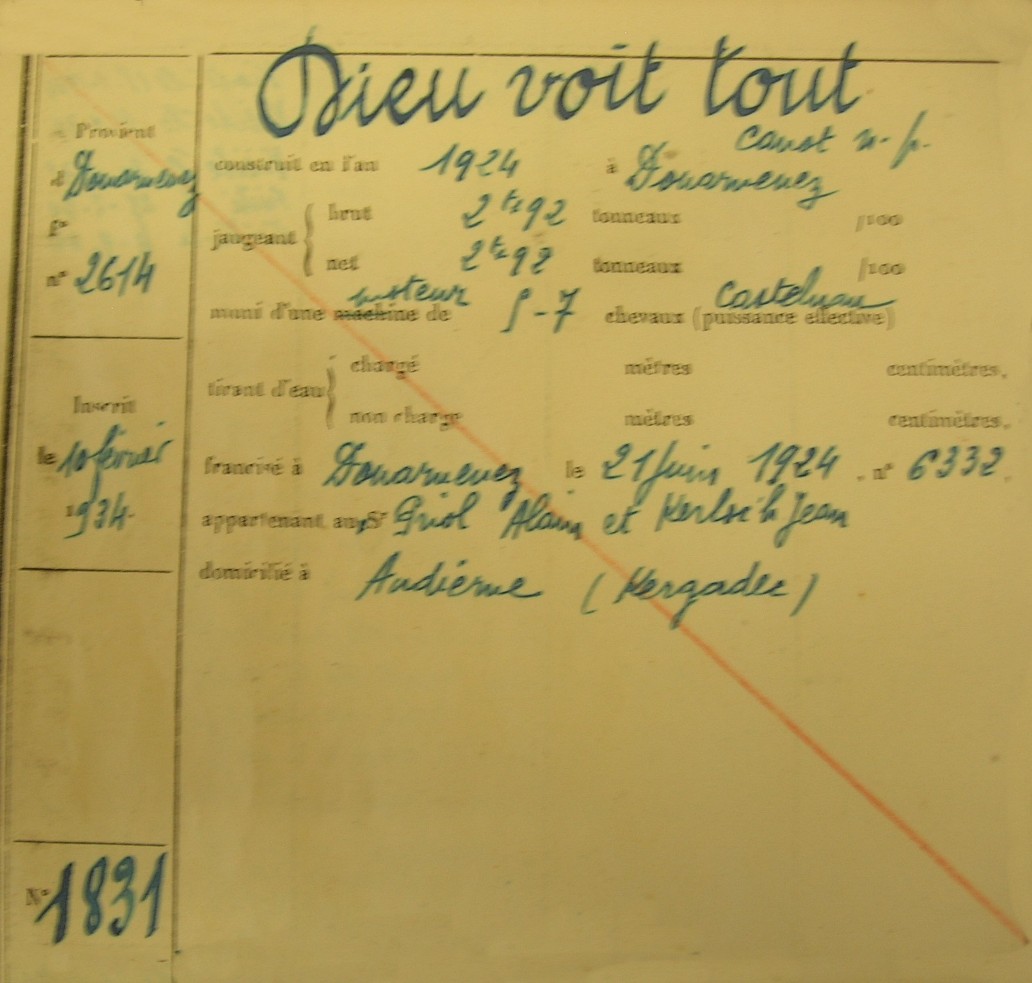 Dieu voit tout
Provient
de Douarnenez
f°
n° 2614
Inscrit
le 10 février
1934
N° 1831
canot n. p.
construit en l'an 1924 à Douarnenez
jaugeant { brut 2tx92 tonneaux /100
net 2tx92 tonneaux /100
moteur Castelnau
muni d'une machine de 5-7 chevaux (puissance effective)
tirant d'eau { chargé mètres centimètres.
non chargé mètres centimètres.
francisé à Douarnenez le 21 Juin 1924, n° 6332.
appartenant aux Srs Priol Alain et Kerloc'h Jean
domicilié à Audierne (Kergadec)